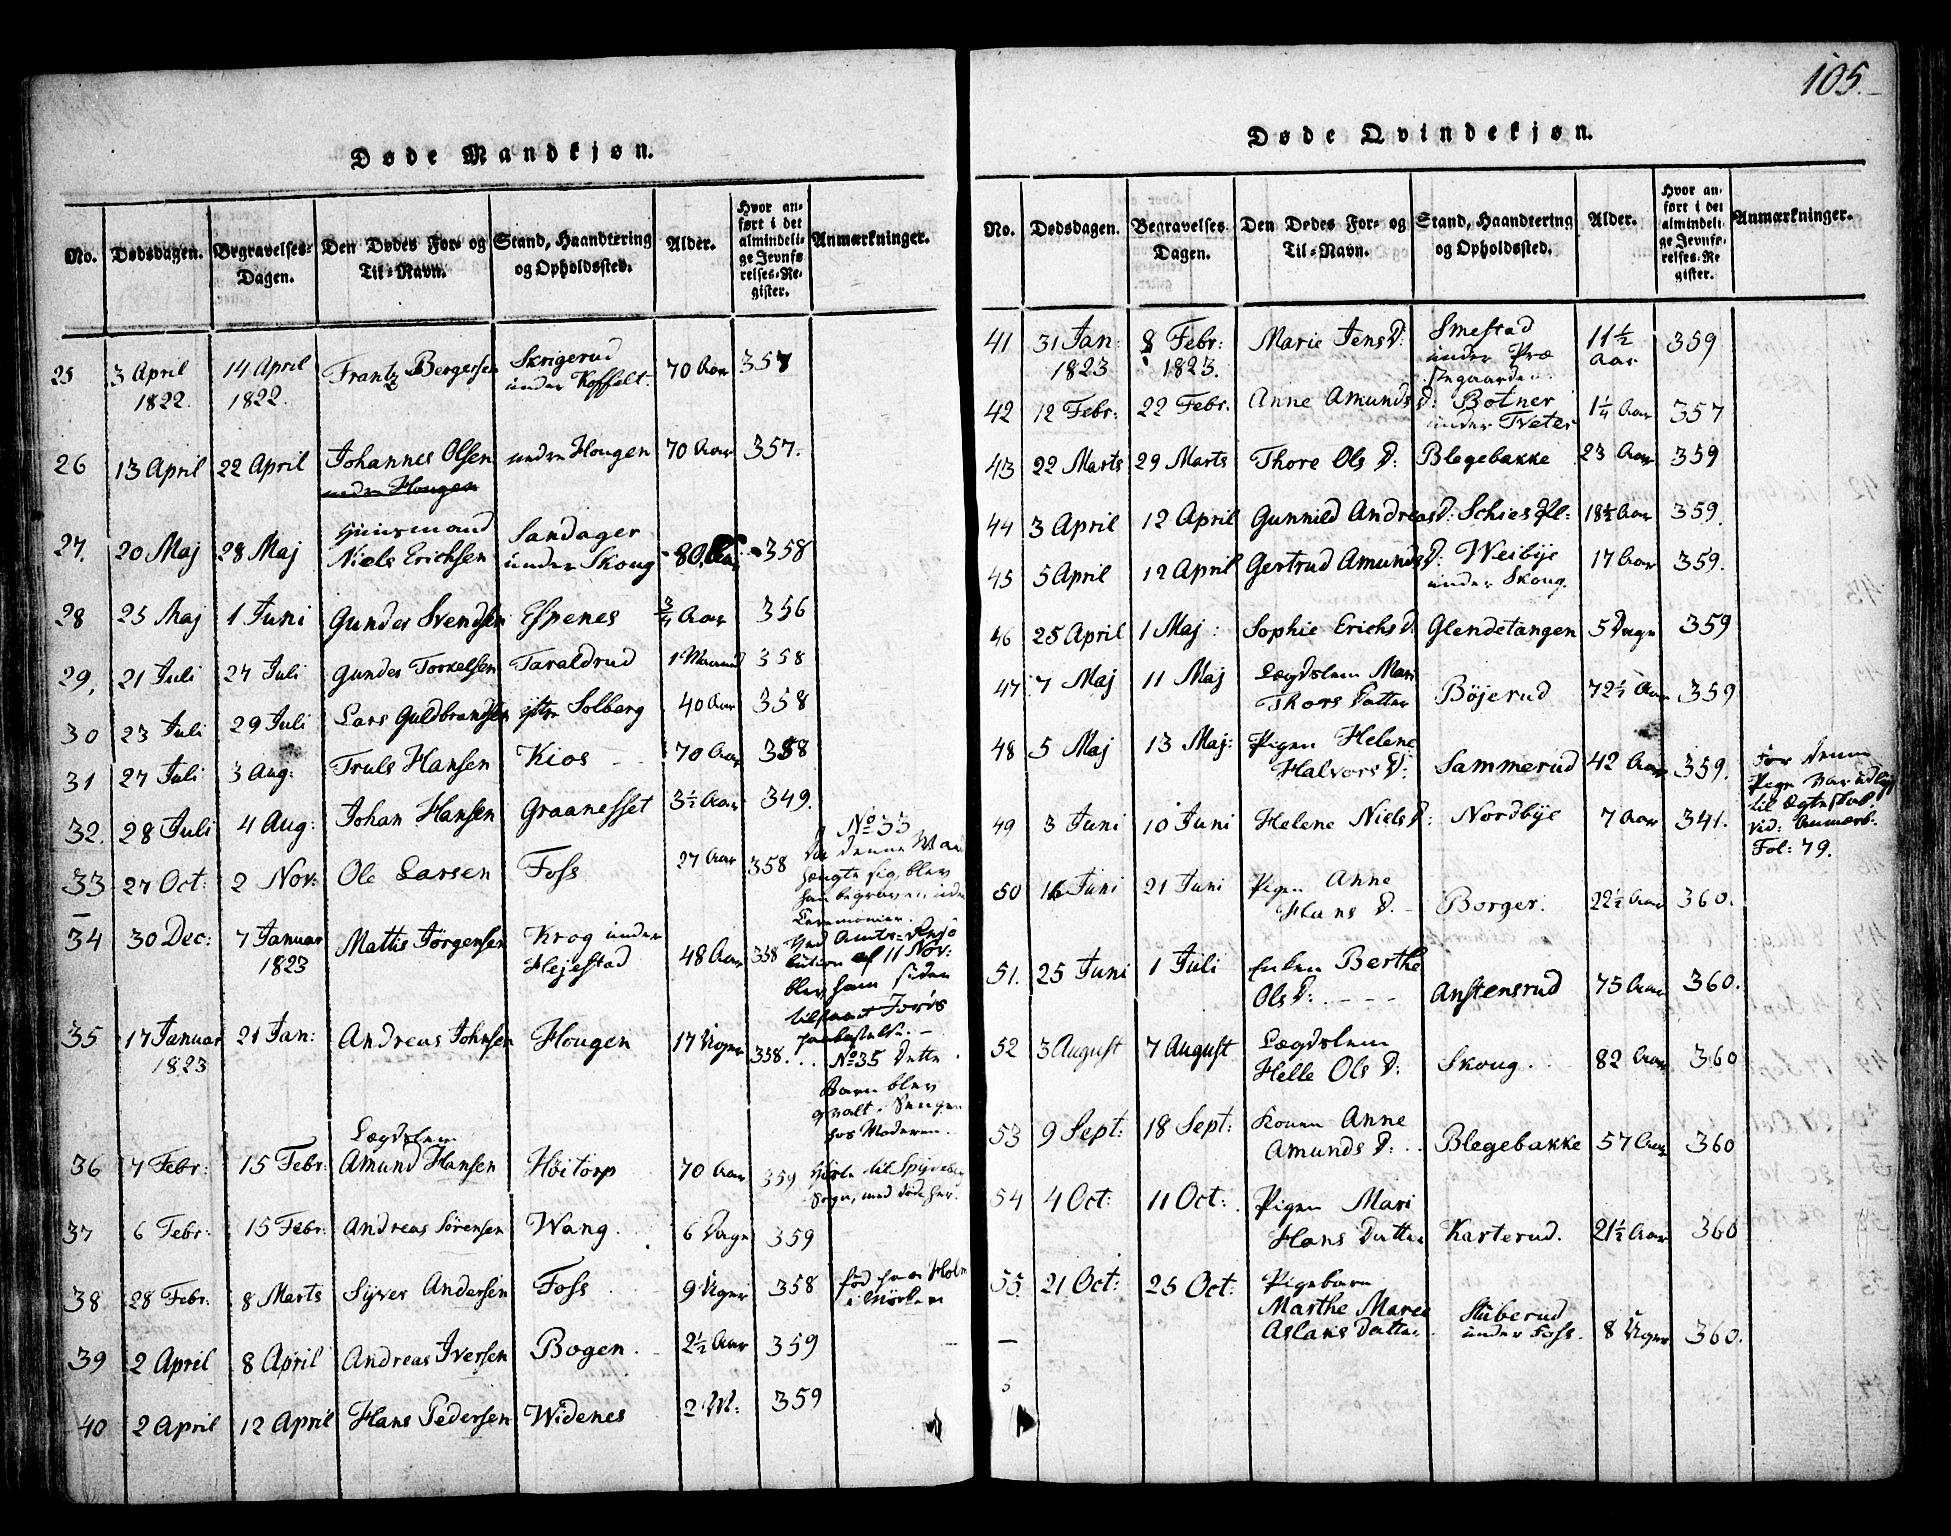 105.
Døde Mandkjøn.
No. Dødsdagen. Begravelses-Dagen. Den Dødes For- og Til-Navn. Stand, Haandtering og Opholdssted. Alder. Hvor anført i det almindelige Jevnførelses-Register. Anmærkninger.
25 3 April 1822. 14 April 1822. Frantz Bergersen Skrigerud under Koffelt. 70 Aar 357
26 13 April 22 April Johannes Olsen under Hougen 70 Aar 357.
under Hougen
27. 20 Maj 28 Maj Huusmand Niels Erichsen Sandager under Skoug 80 Aar 358
28 25 Maj 1 Juni Gunder Svendsen Espenes 3/4 Aar 356
29. 21 Juli 24 Juli Gunder Torkelsen Taraldrud 1 Maaned 358
30 23 Juli 29 Juli Lars Guldbrandsen ytre Solberg 40 Aar 358
31 27 Juli 3 Aug: Truls Hansen Kios 70 Aar 358
32. 28 Juli 4 Aug: Johan Hansen Graanesset 3½ Aar 349.
33 27 Oct: 2 Nov: Ole Larsen Foss 27 Aar 358
No 33
Da denne Mand
hængte sig, blev
han begraven uden
Ceremonier.
Ved Amts-Reso
lution af 11 Nov:
blev ham siden
tilstaaet Jords
paakastelse. -
34 30 Dec: 7 Januar 1823 Mattis Jørgensen Krog under Hejestad 48 Aar 358
35 17 Januar 1823 21 Jan: Andreas Johnsen Hougen 17 Uger 358.
No 35 Dette
Barn blev
qvalt i Sengen
hos Moderen.
36 7 Febr: 15 Febr: Lægdslem Amund Hansen Høitorp 70 Aar 359 Hørte til Spydeberg
Sogn, med døde her.
37 6 Febr: 15 Febr: Andreas Sørensen Wang. 6 Dage 359
38 28 Febr: 8 Marts Syver Andersen Foss 9 Uger 358 født paa Holm
39 2 April 8 April Andreas Iversen Bogen. 2½ Aar 359
40 2 April 12 April Hans Pedersen Widenes 2 M: 359
Døde Qvindekjøn.
No. Dødsdagen. Begravelses Dagen. Den Dødes For- og Til-Navn. Stand, Haandtering og Opholdssted. Alder. Hvor anført i det almindelige Jevnførelses-Register. Anmærkninger.
41 31 Jan: 1823 8 Febr: 1823. Marie Jens D: Smestad under Præstegaarden 11½ Aar 359
42 12 Febr: 22 Febr. Anne Amunds D: Botner under Tveter 1¼ Aar 357
43 22 Marts 29 Marts Thore Ols D: Blegebakke 23 Aar 359
44 3 April 12 April Gunnild Andreas D: 18½ Aar 359.
45 5 April 12 April Gertrud Amunds D. Weibye under Skoug. 17 Aar 359.
46 25 April 1 Maj: Sophie Erichs D. Glendetangen 5 Dage 359
47 7 Maj 11 Maj Lægdslem Mari Thors Datter Böjerud 72½ Aar 359
48 5 Maj 13 Maj: Pigen Helene Halvors D: Sammerud 42 Aar 359. For denne
Pige var udlyst
til Ægteskab.
vid: Anmærk:
Fol: 79.
49 3 Juni 10 Juni Helene Niels D: Nordbye 7 Aar 341.
50 16 Juni 21 Juni Pigen Anne Hans D. Borger. 22½ Aar 360.
51. 25 Juni 1 Juli Enken Berthe Ols D: Anstensrud 75 Aar 360.
52 3 August 7 August Lægdslem Helle Ols D: Skoug. 82 Aar 360
53 9 Sept: 18 Sept: Konen Anne Amunds D: Blegebakke 57 Aar 360
54 4 Oct: 11 Oct: Pigen Mari Hans Datter Karterud. 21½ Aar 360
55 21 Oct: 25 Oct: Pigebarn Marthe Marie Aslaks Datter Stuberud under Foss. 8 Uger 360.